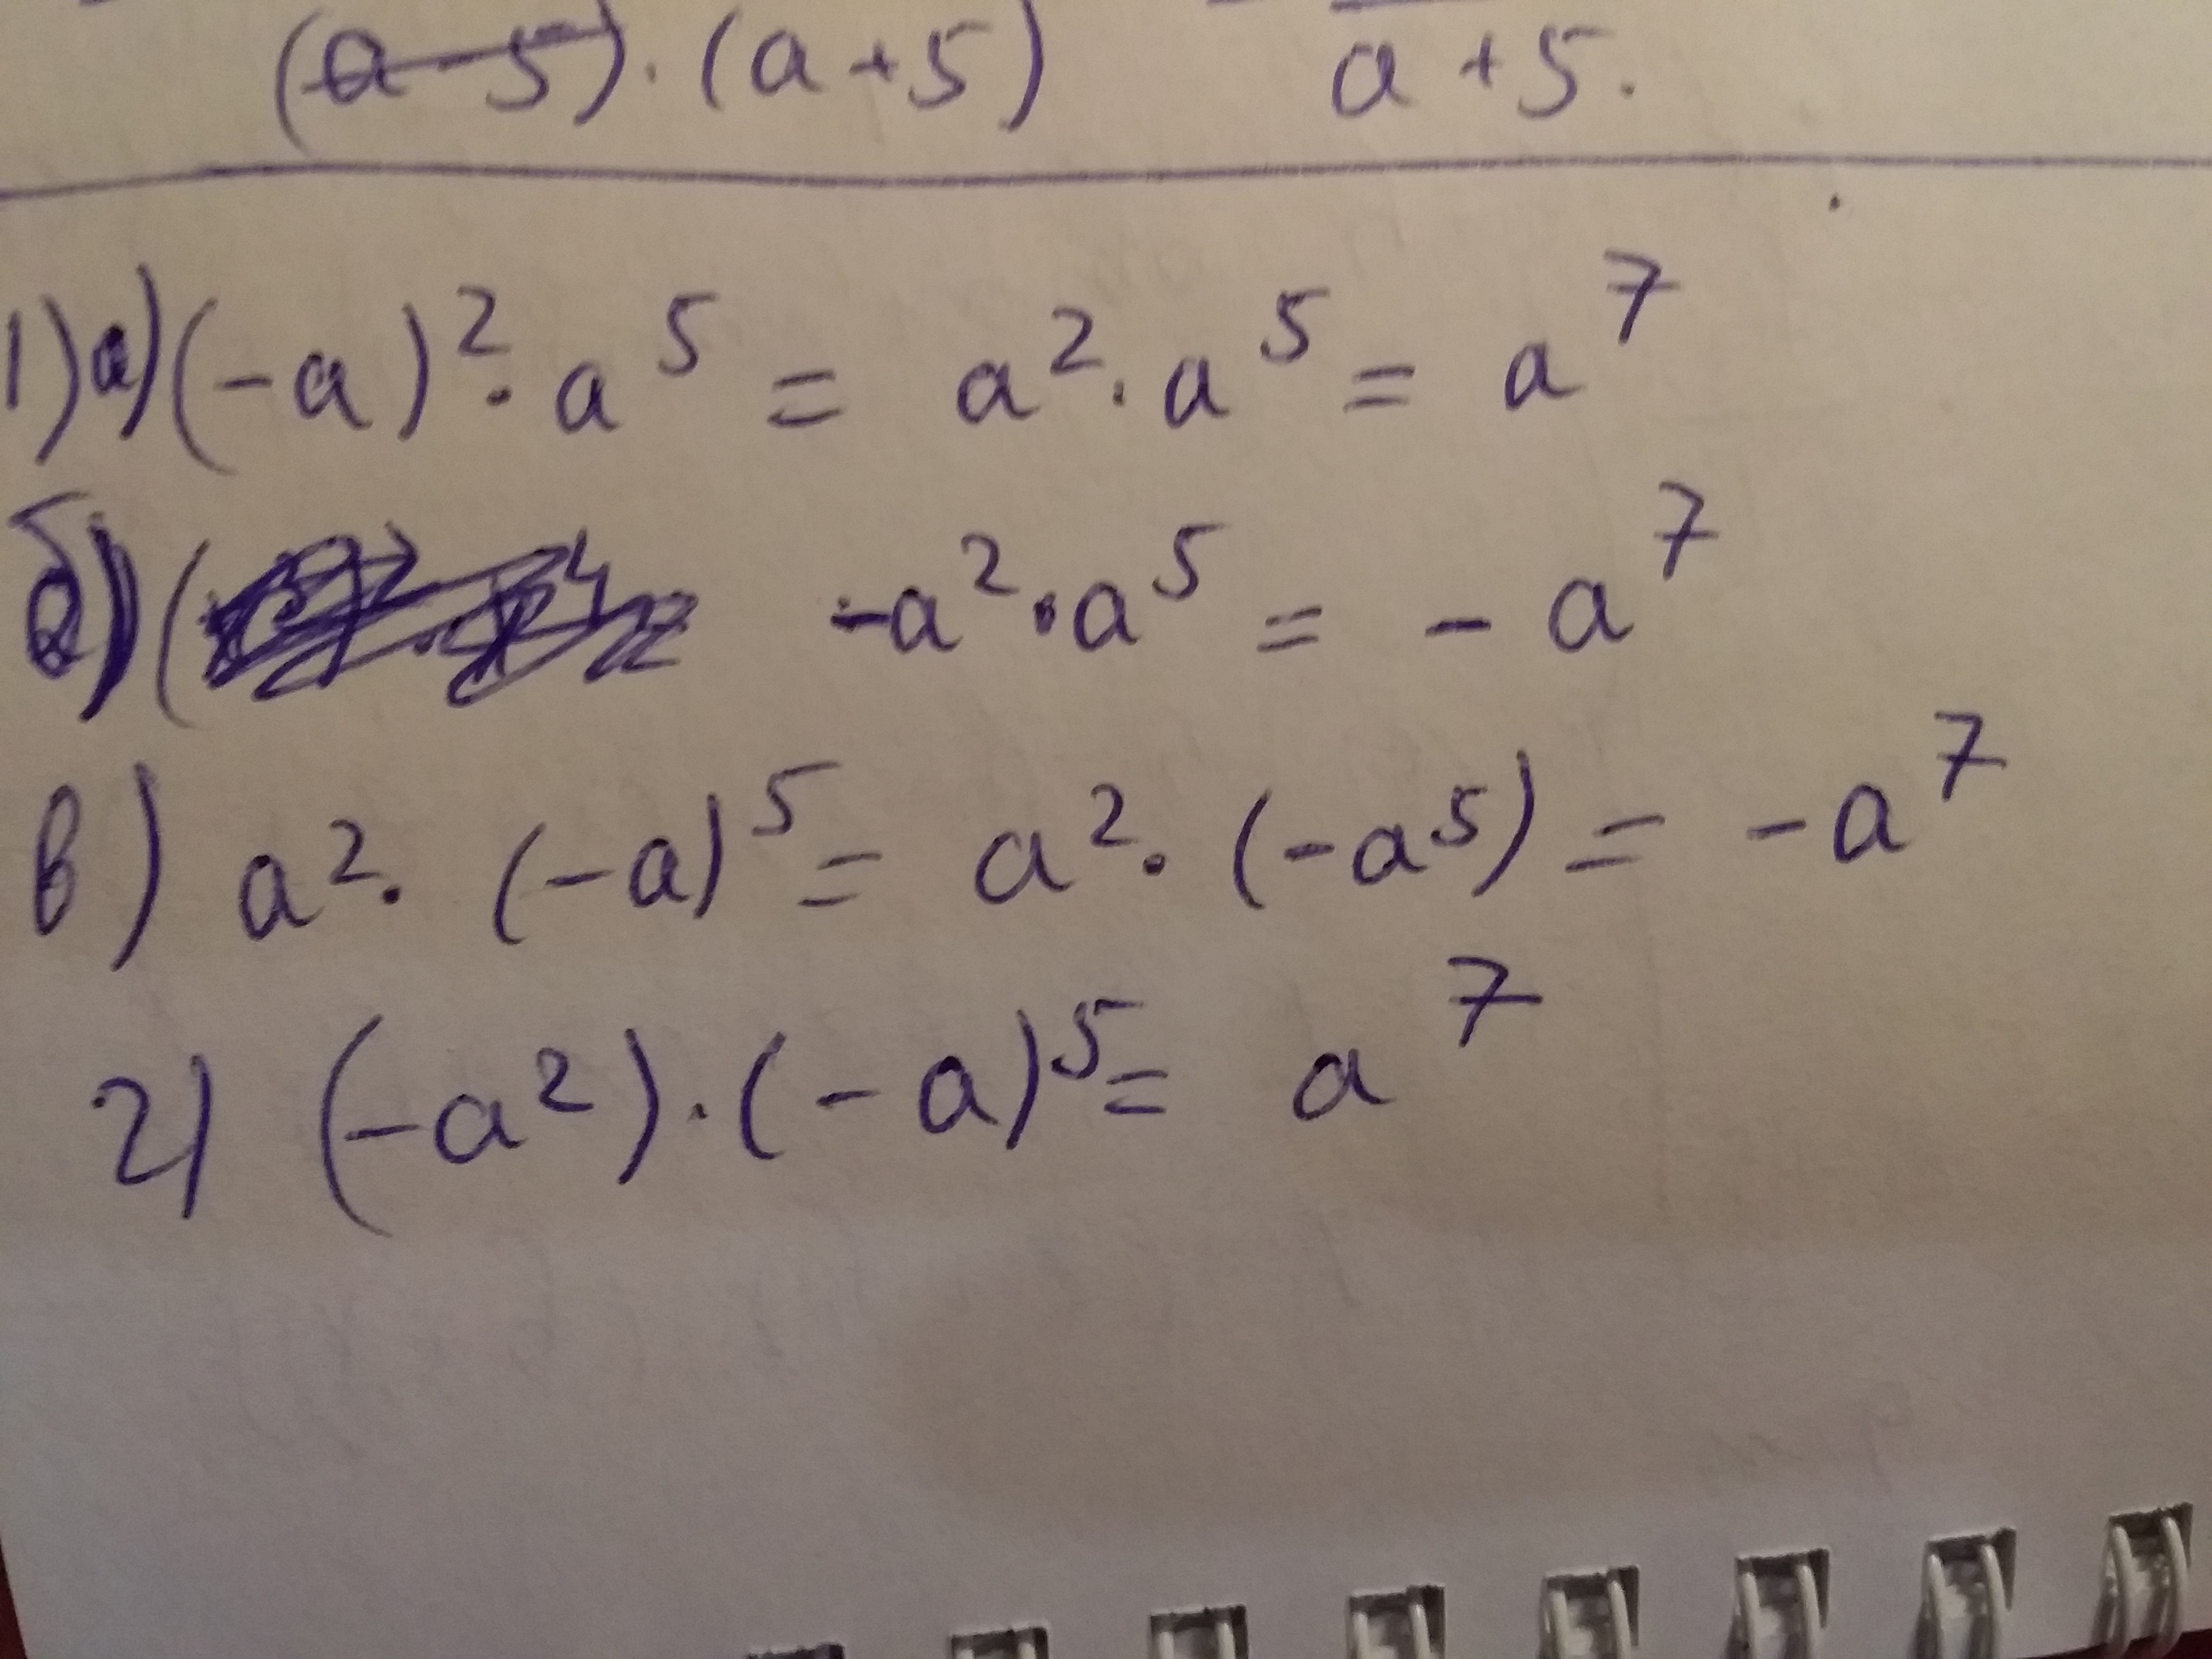 (a-5)·(a+5) a+5.
1) а) (-a)²·a⁵ = a²·a⁵ = a⁷
б) ( -a²·a⁵ = -a⁷
в) a²·(-a)⁵ = a²·(-a⁵) = -a⁷
г) (-a²)·(-a)⁵ = a⁷